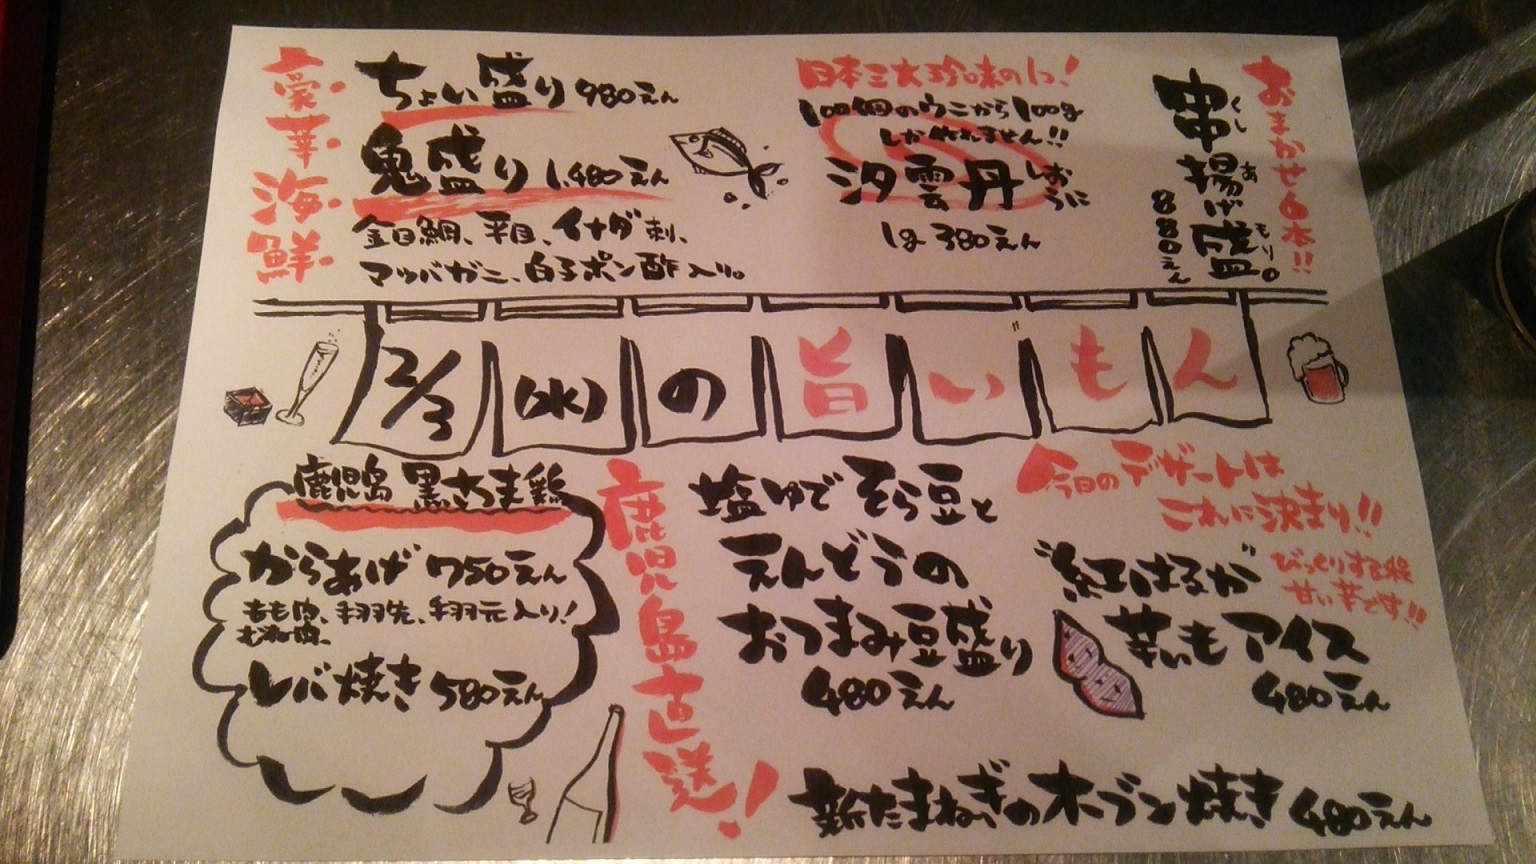 豪華海鮮
ちょい盛り 980えん
鬼盛り 1,480えん
金目鯛、平目、イナダ刺、
マツバガニ、白子ポン酢入り。
日本三大珍味の1つ!
100個のウニから100g
しか作れません!!
汐雲丹 しおうに
1g 380えん
おまかせ6本!!
串揚げ盛。
くしあもり
880えん
2/3 (水) の旨いもん
鹿児島 黒さつま鶏
からあげ 750えん
もも肉、手羽先、手羽元入り!
レバ焼き 580えん
鹿児島直送!
塩ゆでそら豆と
えんどうの
おつまみ豆盛り
480えん
今日のデザートは
これに決まり!!
"紅はるか"
びっくりする程
甘い芋です!!
芋いもアイス
480えん
新たまねぎのオーブン焼き 480えん